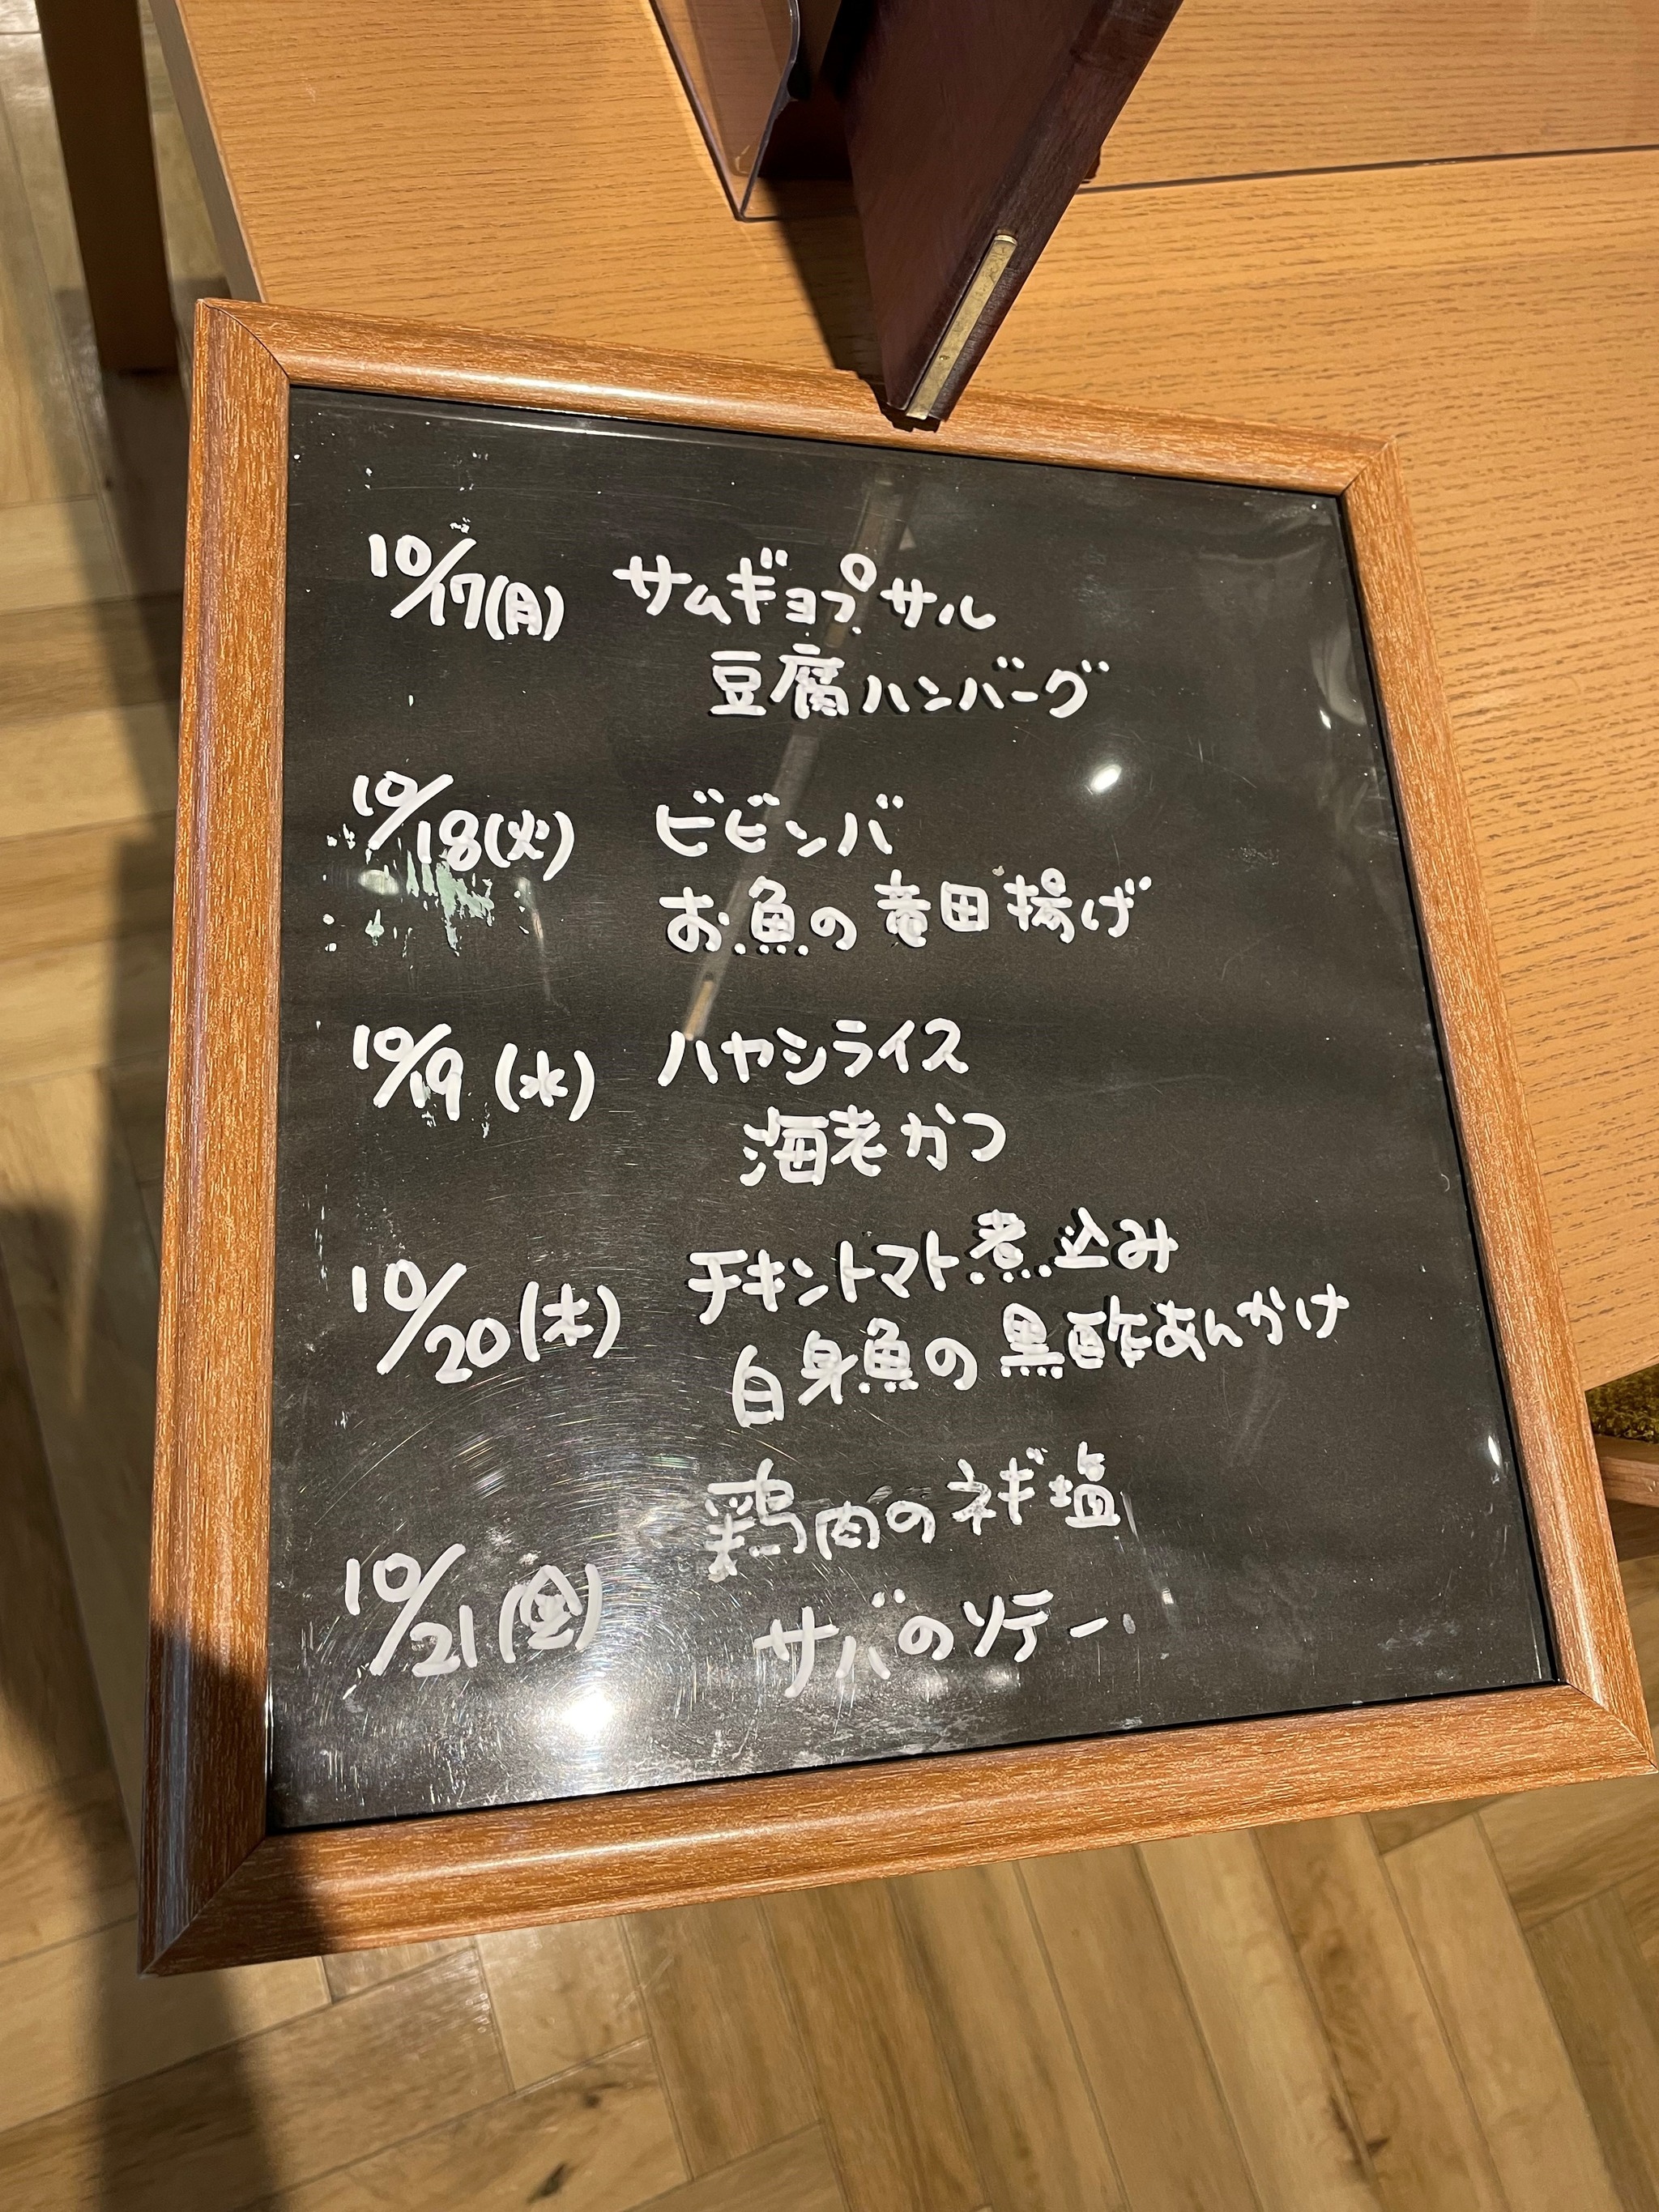 10/17(月) サムギョプサル
豆腐ハンバーグ
10/18(火) ビビンバ
お魚の竜田揚げ
10/19(水) ハヤシライス
海老かつ
10/20(木) チキントマト煮込み
白身魚の黒酢あんかけ
10/21(金) 鶏肉のネギ塩
サバのソテー